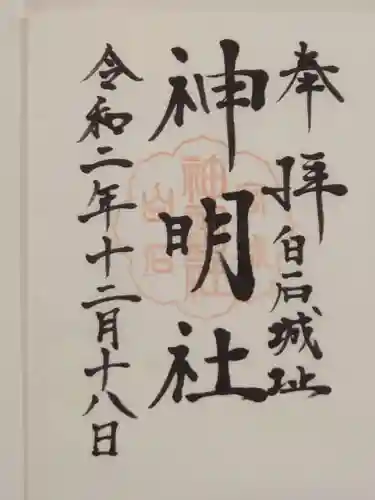 奉拝
白石城址
神明社
令和二年十二月十八日